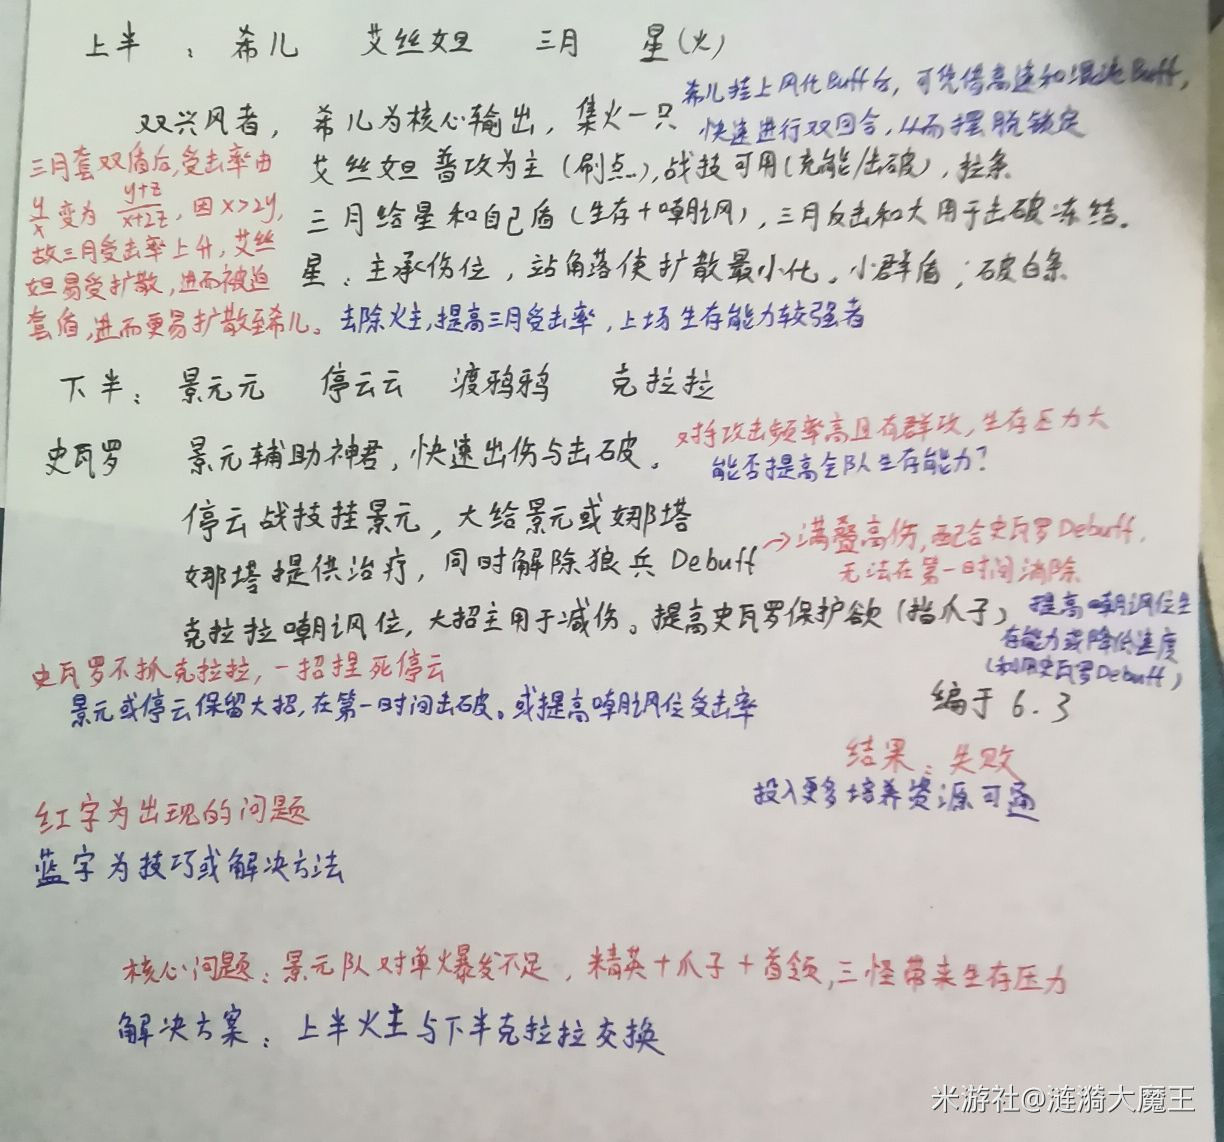 上半：希儿 艾丝妲 三月 星(火)
希儿挂上风化Buff后，可凭借高速和混沌Buff，
快速进行双回合，从而摆脱锁定
双兴风者，希儿为核心输出，集火一只
三月套双盾后,受击率由
y/x 变为 y+z/x+2z，因x>2y，
故三月受击率上升，艾丝
妲易受扩散，进而被迫
套盾,进而更易扩散至希儿。
艾丝妲普攻为主（刷点），战技可用(充能/击破)，拉条
三月给星和自己盾（生存+嘲讽），三月反击和大用于击破冻结。
星：主承伤位，站角落使扩散最小化。小群盾；破白条
去除火主,提高三月受击率，上场生存能力较强者
下半：景元元 停云云 渡鸦鸦 克拉拉
史瓦罗 景元辅助神君，快速出伤与击破。
对手攻击频率高且有群攻，生存压力大
能否提高全队生存能力？
停云战技挂景元，大给景元或娜塔
娜塔提供治疗，同时解除狼兵Debuff
→满叠高伤，配合史瓦罗Debuff，
无法在第一时间消除
克拉拉嘲讽位，大招主用于减伤。提高史瓦罗保护欲（挡爪子）
提高嘲讽位生
存能力或降低速度
(利用史瓦罗Debuff)
史瓦罗不抓克拉拉，一招捏死停云
景元或停云保留大招，在第一时间击破。或提高嘲讽位受击率
编于6.3
结果：失败
投入更多培养资源可通
红字为出现的问题
蓝字为技巧或解决方法
核心问题：景元队对单爆发不足，精英+爪子+首领，三怪带来生存压力
解决方案：上半火主与下半克拉拉交换
米游社@涟漪大魔王